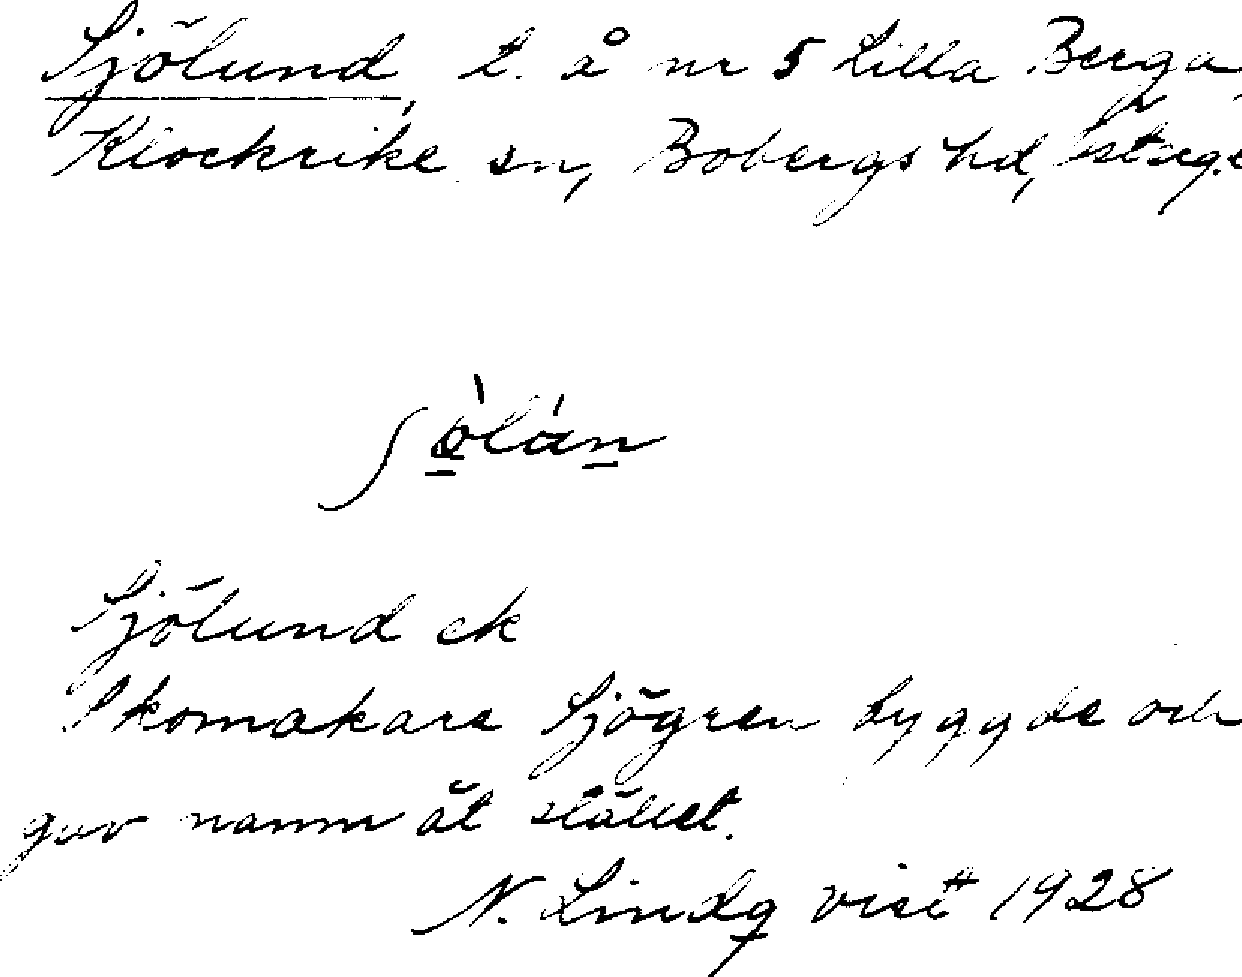 Sjölund, l. å nr 5 Lilla Berga,
Klockrike sn, Bobergs hd, Östergö
ʃö̀lán
Sjölund ek
Skomakare Sjögren byggde och
gav namn åt stället.
N. Lindq vist 1928